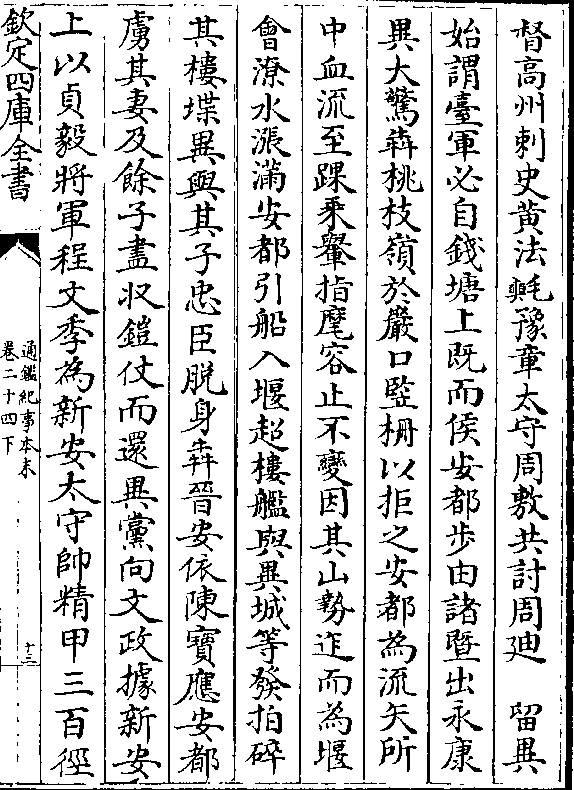 督高州刺史黄法𣰰豫章太守周敷共討周廸　留異
始謂臺軍必自錢塘上既而侯安都步由諸暨出永康
異大驚犇桃枝嶺於嚴口監栅以拒之安都為流矢所
中血流至踝乗轝指麾容止不變因其山勢迮而為堰
㑹潦水漲滿安都引船入堰起樓艦與異城等發拍碎
其樓堞異與其子忠臣脱身犇晉安依陳寶應安都
虜其妻及餘子盡收鎧仗而還異黨向文政據新安
上以貞毅將軍程文季為新安太守帥精甲三百徑
欽定四庫全書
通鑑紀事本末
卷二十四下
十三